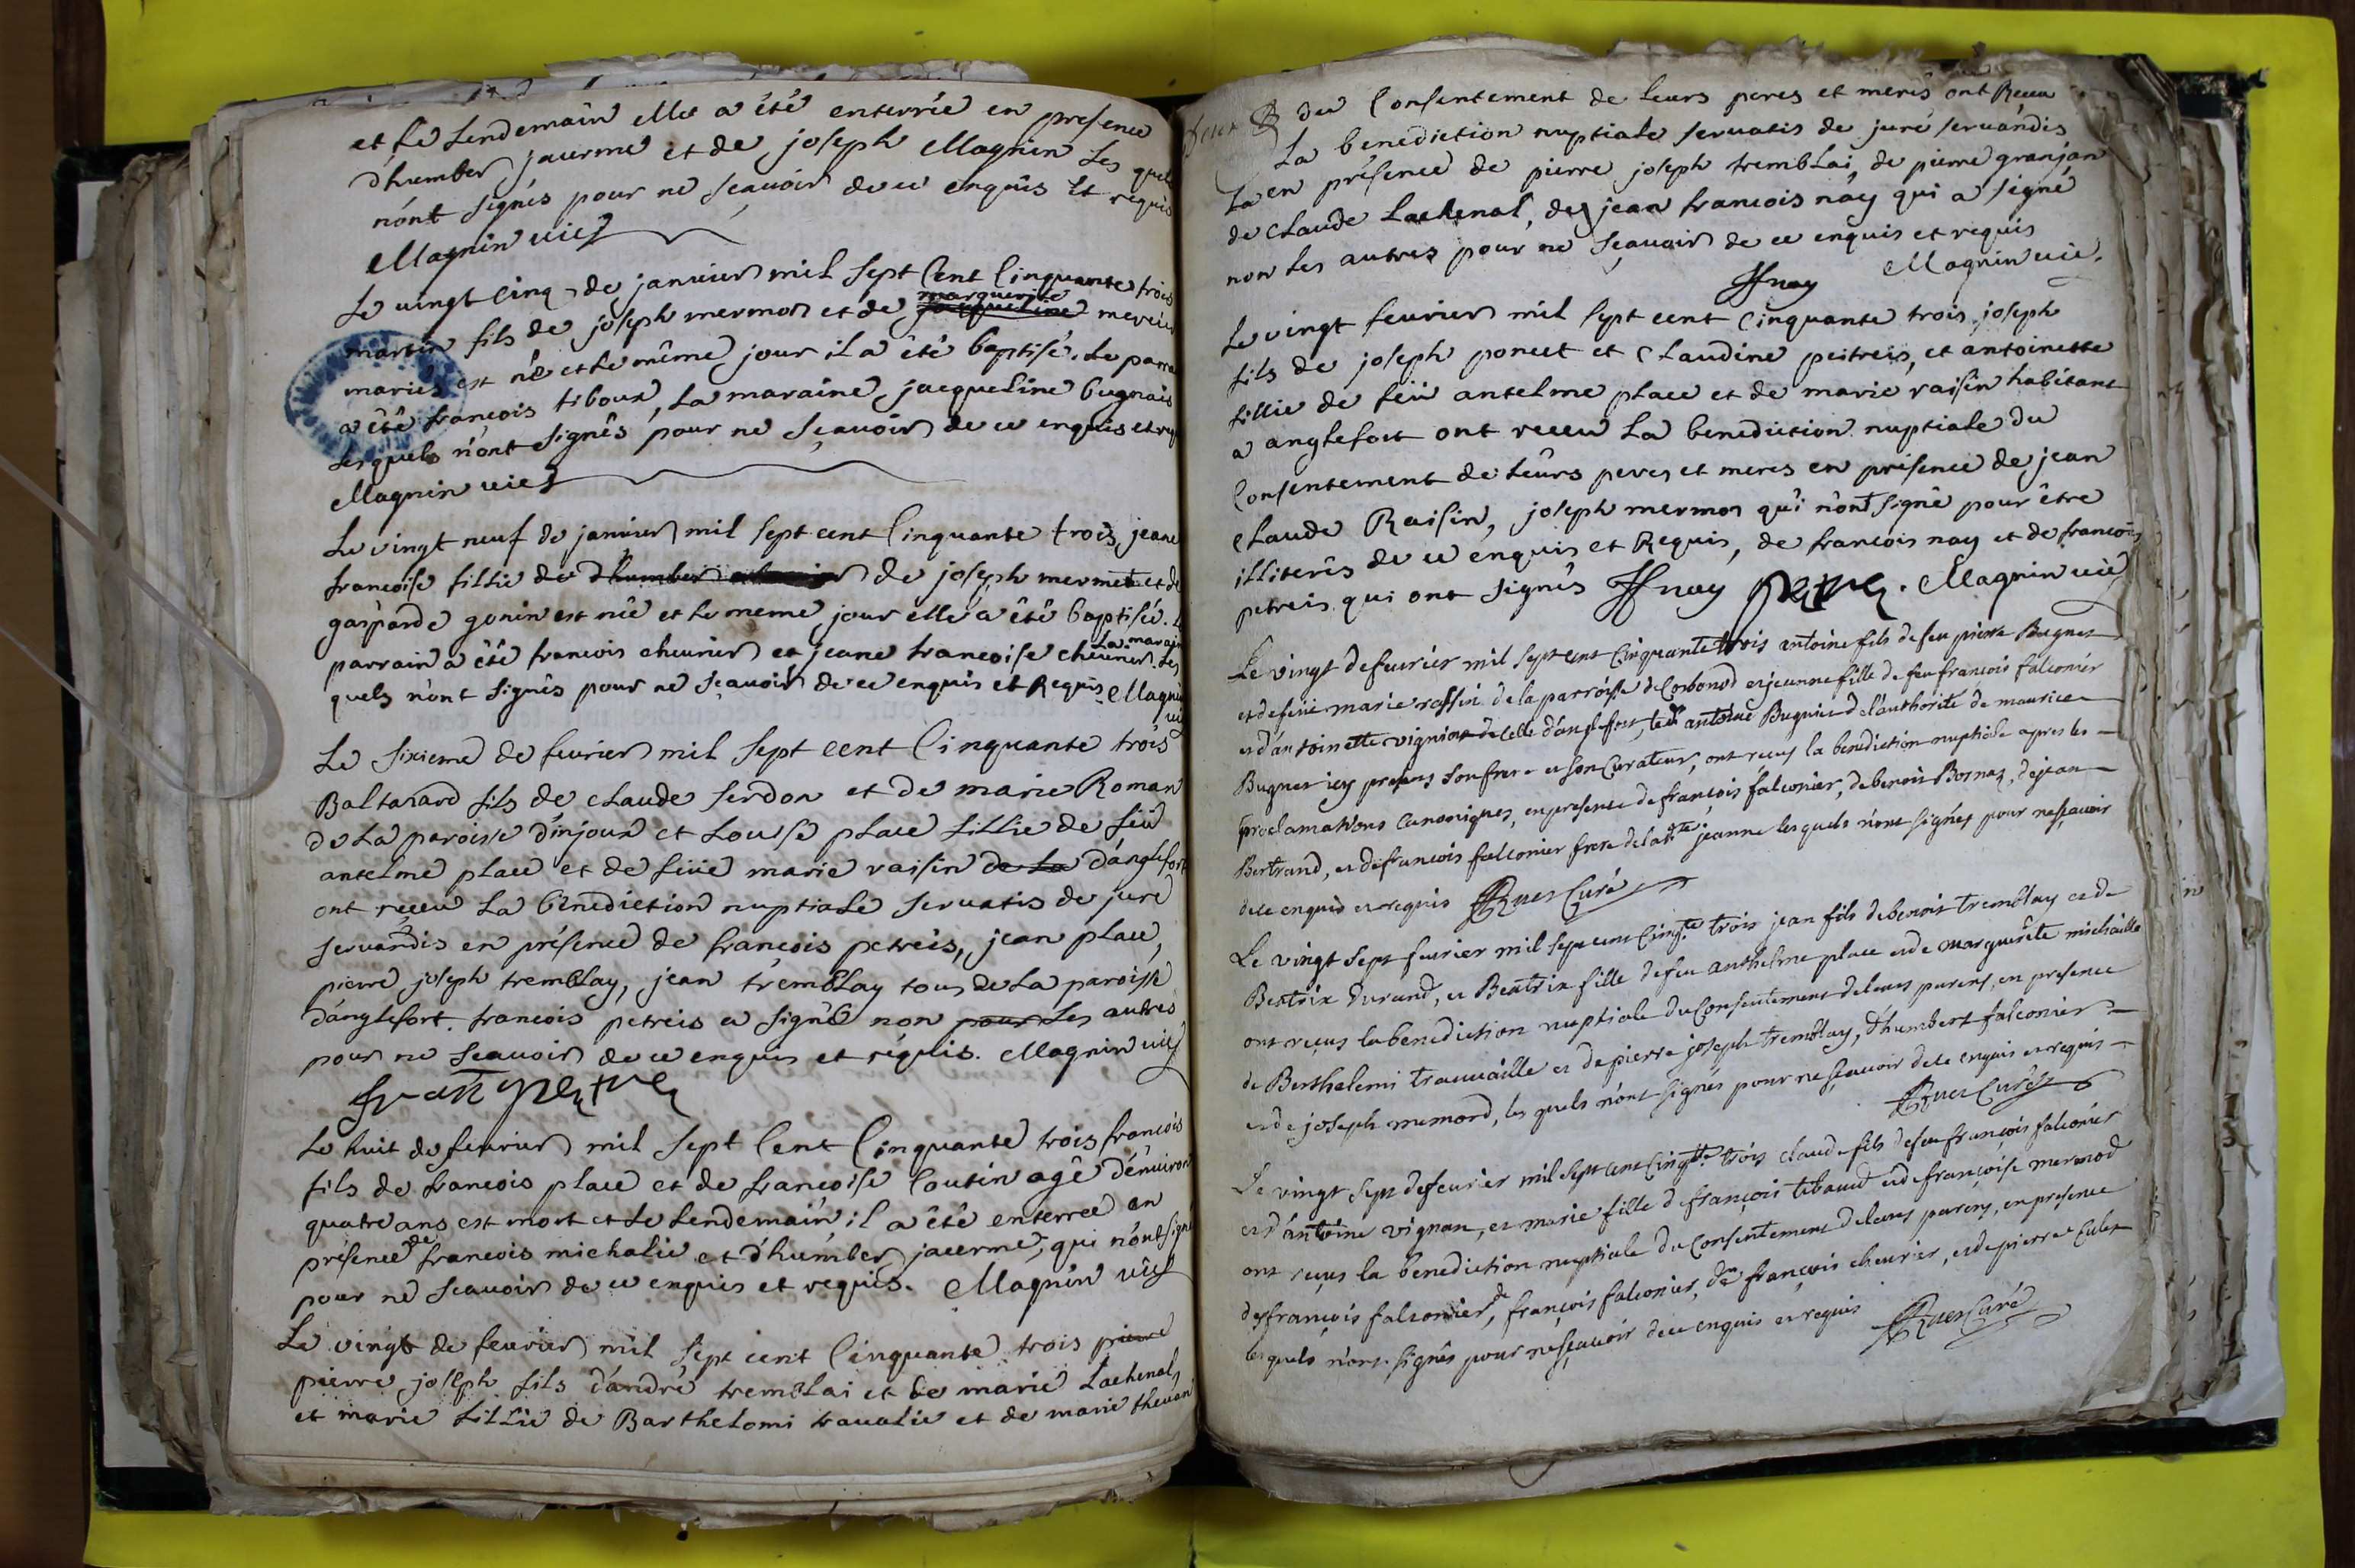 et le Lendemain elle a été enterrée en presence
d'humber jacerme et de joseph Magnin Les quels
n'ont signés pour ne sçauoir de ce enquis et requis
Magnin vic
Le uingt cinq de januier mil sept Cent Cinquante trois
martin fils de joseph mermor et de marguerite
mariés est né et le même jour il a été baptisé. Le parra
a été françois tiboux, La maraine jacqueline bugnais
lesquels n'ont signés pour ne sçauoir de ce enquis et req
Magnin vic
Le vingt neuf de januier mil sept cent Cinquante trois, jeane
francoise fillie de d'humber de joseph mermet et de
gasparde gonin est née et le meme jour elle a été baptisé. L
La marain
parrain a été francois cheurier et jeane francoise cheurier Les
quels n'ont signés pour ne sçauoir de ce enquis et Requis Magnin
vic
Le sixieme de feurier mil sept cent Cinquante trois
Baltasard fils de claude serdon et de marie Roman
de La paroisse d'injoux et Louise place fillie de feü
antelme place et de feüe marie raisin de La d'anglefort
ont reçeu La bénediction nuptiale seruatis de jure
seruandis en présence de françois petreis, jean place,
pierre joseph tremblay, jean tremblay tous de La paroisse
d'anglefort. francois petreis a signé non pour Les autres
pour ne sçauoir de ce enquis et réquis. Magnin vic
fran petreis
Le huit de feurier mil sept Cent Cinquante trois francois
fils de francois place et de francoise Coutin agé d'enuiron
quatre ans est mort et Le Lendemain il a été enterree en
présence de francois michalie et d'humber jacerme, qui n'ont signé
pour ne sçauoir de ce enquis et requis. Magnin vic
Le vingt de feurier mil sept cent Cinquante trois pierre
pierre joseph fils d'andré tremblai et de marie Lachenal,
et marie fillie de Barthelomi traualie et de marie theuan
du Consentement de Leurs peres et meres ont Receu
La benediction nuptiale seruatis de jure seruandis
La en présence de pierre joseph tremblai, de pierre granjan
de claude Lachenal, de jean francois nay qui a signé
non les autres pour ne sçauoir de ce enquis et requis
Jfnay Magnin vic.
Le vingt feurier mil sept cent Cinquante trois joseph
fils de joseph poncet et Claudine peitreis, et antoinette
fillie de feü antelme place et de marie raisin habitant
a anglefort ont receu La benediction nuptiale du
Consentement de Leurs peres et meres en présence de jean
claude Raisin, joseph mermor qui n'ont signé pour être
illiterés de ce enquis et Requis, de francois nay et de francois
petreis qui ont signés Jfnay petreis. Magnin vic
Le vingt de feurier mil sept cent Cinquante trois antoine fils de feu pierre Bugnet
et de feüe marie rassin de la parroisse de Corbonod et jeanne fille de feu françois falconier
et d'antoinette vignion de celle d'anglefort, led antoine Bugnier de l'authorité de maurice
Bugner icy présens son frere et son Curateur, ont recus la benediction nuptiale apres les
proclamations canoniques, en presence de françois falconier, de benoit Bornaz, de jean
Bertrand, et de francois falconier frere de lad.te jeanne lesquels n'ont signés pour ne sçauoir
de ce enquis et requis Ruet Curé
Le vingt sept feurier mil sept cent Cinqte trois jean fils de benoit tremblay et de
Beatrix durand, et Beatrix fille de feu anthelme place et de marguerite michaille
ont reçus la benediction nuptiale du Consentement de leurs parens, en presence
de Berthelemi trauvaille et de pierre joseph tremblay, d'humbert falconier
et de joseph mermord, les quels n'ont signés pour ne sçauoir de ce enquis et requis
Ruet Curé
Le vingt sept de feurier mil sept cent Cinqte trois claude fils de feu françois falconier
et d'antoine vignon, et marie fille de françois tibaud et de françoise mermod
ont reçus la benediction nuptiale du Consentement de leurs parens, en presence
de françois falconier, de françois falconier, de françois cheurier, et de pierre Culet
lesquels n'ont signés pour ne sçauoir de ce enquis et requis Ruet Curé